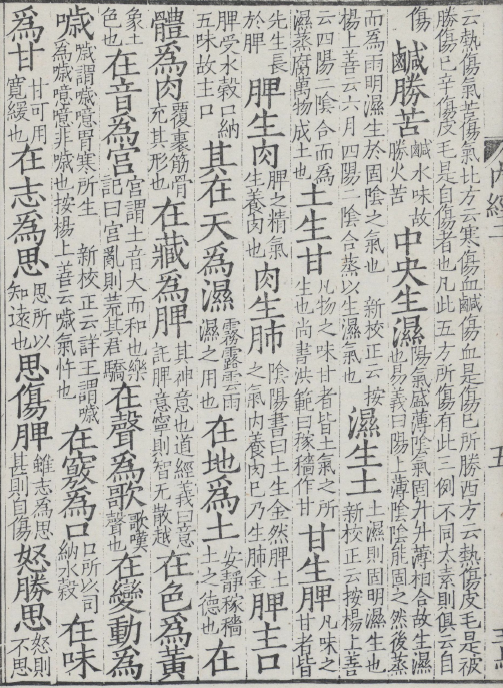 云熱傷氣苦傷氣比方云寒傷血鹹傷血是傷已所勝西方云熱傷皮毛是被
勝傷已辛傷皮毛是自傷者也凡此五方所傷有此三例不同太素則俱云自
傷
鹹勝苦
鹹水味故
勝火苦
中央生濕
陽氣盛薄陰氣固升升薄相合故生濕
也易義曰陽上薄陰陰能固之然後蒸
而為雨明濕生於固陰之氣也 新校正云按
楊上善云六月四陽二陰合蒸以生濕氣也
濕生土
土濕則固明濕生也
新校正云按楊上善
云四陽二陰合而為
濕蒸腐萬物成土也
土生甘
凡物之味甘者皆土氣之所
生也尚書洪範曰稼穡作甘
甘生脾
凡味之
甘者皆
先生長
於脾
脾生肉
脾之精氣
生養肉也
肉生肺
陰陽書曰土生金然脾土
之氣內養肉巳乃生肺金
脾主口
脾受水穀口納
五味故主口
其在天為濕
霧露雲雨
濕之用也
在地為土
安靜稼穡
土之德也
在
體為肉
覆裹筋骨
充其形也
在藏為脾
其神意也道經義曰意
託脾意寧則智无散越
在色為黃
象土
色也
在音為宮
宮謂土音大而和也樂
記曰宮亂則荒其君驕
在聲為歌
歌嘆
聲也
在變動為
噦
噦謂噦噫胃寒所生 新校正云詳王謂噦
為噦噫噫非噦也按楊上善云噦氣忤也
在竅為口
口所以司
納水穀
在味
為甘
甘可用
寬緩也
在志為思
思所以
知遠也
思傷脾
雖志為思
甚則自傷
怒勝思
怒則
不思